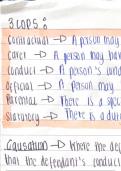 3 COPS :
Contractual → A person may
Carer → A person may hav
conduct → A person's cond
Official → A person may
Parental → There is a spec
Statutory → There is a dut
Causation → Where the de
that the defendant's conduct